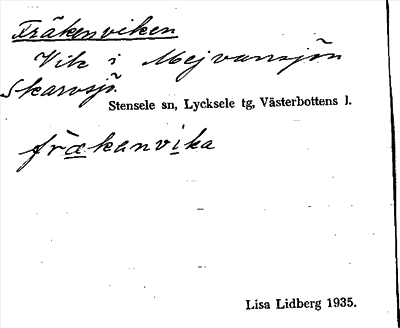 Fräkenviken
Vik i Mejvansjön
Skarvsjö
Stensele sn, Lycksele tg, Västerbottens l.
fræ̀kanvika
Lisa Lidberg 1935.